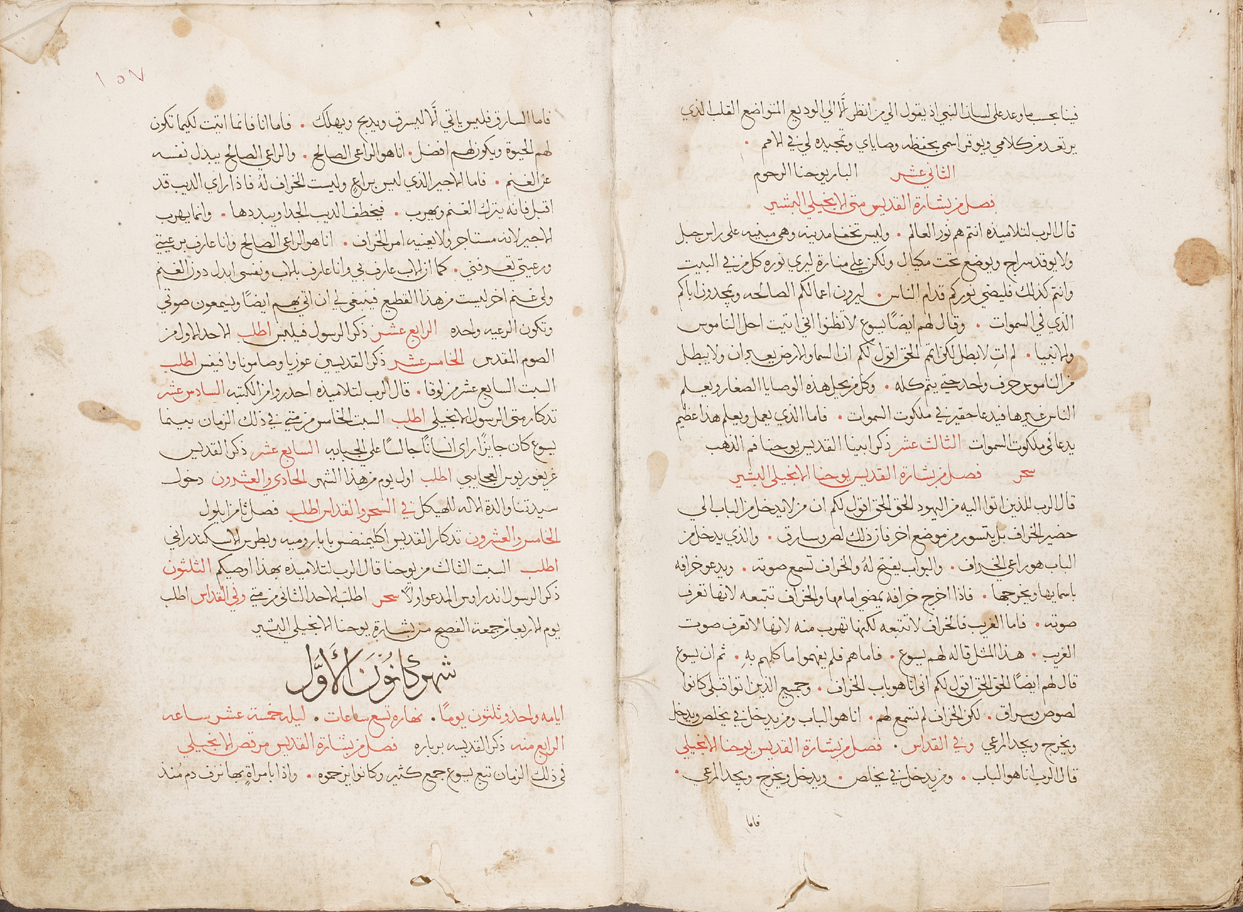 فينا بحسب ما وعد على لسان النبي اذ يقول الى من انظر الا الى الوديع المتواضع القلب الذي
يرتعد من كلامي ويوقر اسمي بحفظه وصاياي وتمجيده لي في الامم
الثاني عشر البار يوحنا الرحوم
فصل من بشارة القديس متى الانجيلي البشير
قال الرب لتلاميذه انتم هم نور العالم . وليس تخفا مدينه وهي مبنيه على راس جبل
ولا يوقد سراج ويوضع تحت مكيال ولكن على منارة ليرى نوره كل من في البيت
وانتم كذلك فليضي نوركم قدام الناس . ليرون اعمالكم الصالحه ويمجدون اباكم
الذي في السموات . وقال لهم ايضًا يسوع لا تظنوا اني اتيت احل الناموس
والانبيا . لم ات لابطل لكن لاتم الحق اقول لكم ان السما والارض يعبران ولا يبطل
من الناموس حرف واحد حتى يتم كله . وكل من يحل هذه الوصايا الصغار ويعلم
الناس غيرها فيدعا حقير في ملكوت السموات . فاما الذي يعمل ويعلم هذا عظيم
يدعا في ملكوت السموات الثالث عشر ذكر ابينا القديس يوحنا فم الذهب
سحر فصل من بشارة القديس يوحنا الانجيلي البشير
قال الرب للذين اتوا اليه من اليهود الحق الحق اقول لكم ان من لا يدخل من الباب الى
حضير الخراف بل يتسور من موضع اخر فان ذلك لص وسارق . والذي يدخل من
الباب هو راعي الخراف . والبواب يفتح له والخراف تسمع صوته . ويدعو خرافه
باسمايها ويخرجها . فاذا اخرج خرافه يمضي امامها والخراف تتبعه لانها تعرف
صوته . فاما الغريب فالخراف لا تتبعه لكنها تهرب منه لانها لا تعرف صوت
الغريب . هذا المثل قاله لهم يسوع . فاماهم فلم يفهموا ما كلمهم به . ثم ان يسوع
قال لهم ايضًا الحق الحق اقول لكم اني انا هو باب الخراف . وجميع الذين اتوا قبلي كانوا
لصوص وسراق . لكن الخراف لم تسمع لهم . انا هو الباب ومن يدخل في يخلص ويدخل
ويخرج ويجد المرعي وفي القداس . فصل من بشارة القديس يوحنا الانجيلي
قال الرب انا هو الباب . ومن يدخل في يخلص . ويدخل ويخرج ويجد المرعي .
فاما
١٥٧
فاما السارق فليس ياتي الا ليسرق ويذبح ويهلك . فاما انا فانما اتيت لكيما تكون
لهم الحيوة ويكون لهم افضل . انا هو الراعي الصالح . والراعي الصالح يبذل نفسه
عن الغنم . فاما الاجير الذي ليس براعٍ وليست الخراف له فاذا راى الذيب قد
اقبل فانه يترك الغنم ويهرب . فيخطف الذيب الخراف ويبددها . وانما يهرب
الاجير لانه مستاجر ولا يعنيه امر الخراف . انا هو الراعي الصالح وانا عارف برعيتي
ورعيتي تعرفني . كما ان الاب عارف بي وانا عارف بالاب ونفسي ابذل دون الغنم
ولي غنم اخر ليست من هذا القطيع فينبغي لي ان اتي بهم ايضًا ويسمعون صوتي
وتكون الرعيه واحده الرابع عشر ذكر الرسول فيلبس اطلب الاحد الاول من
الصوم المقدس الخامس عشر ذكر القديسين غوريا وصامونا وافيفس اطلب
السبت السابع عشر من لوقا . قال الرب لتلاميذه احذروا من الكتبه السادس عشر
تذكار متى الرسول الانجيلي اطلب السبت الخامس من متى في ذلك الزمان بينما
يسوع كان جايزًا راى انسانًا جالسًا على الجبايه السابع عشر ذكر القديس
غريغوريوس العجايبي اطلب اول يوم من هذا الشهر الحادي والعشرون دخول
سيدتنا والدة الاله للهيكل في السحر والقداس اطلب فصل ثامن ايلول
الخامس والعشرون تذكار القديس اكليمنضس بابا روميه وبطرس الاسكندراني
اطلب السبت الثالث من يوحنا قال الرب لتلاميذه بهذا اوصيكم الثلثون
ذكر الرسول اندراوس المدعو اولًا سحر اطلب الاحد الثاني من متى وفي القداس اطلب
يوم الاربعا من جمعة الفصح من بشارة يوحنا الانجيلي البشير
شهر كانون الأوَّل
ايامه واحد وثلثون يومًا . نهاره تسع ساعات . ليله خمسة عشر ساعه
الرابع منه ذكر القديسه برباره فصل من بشارة القديس مرقص الانجيلي
في ذلك الزمان تبع يسوع جمع كثير وكانوا يزحموه . واذا بامراةٍ بها نزف دم منذ